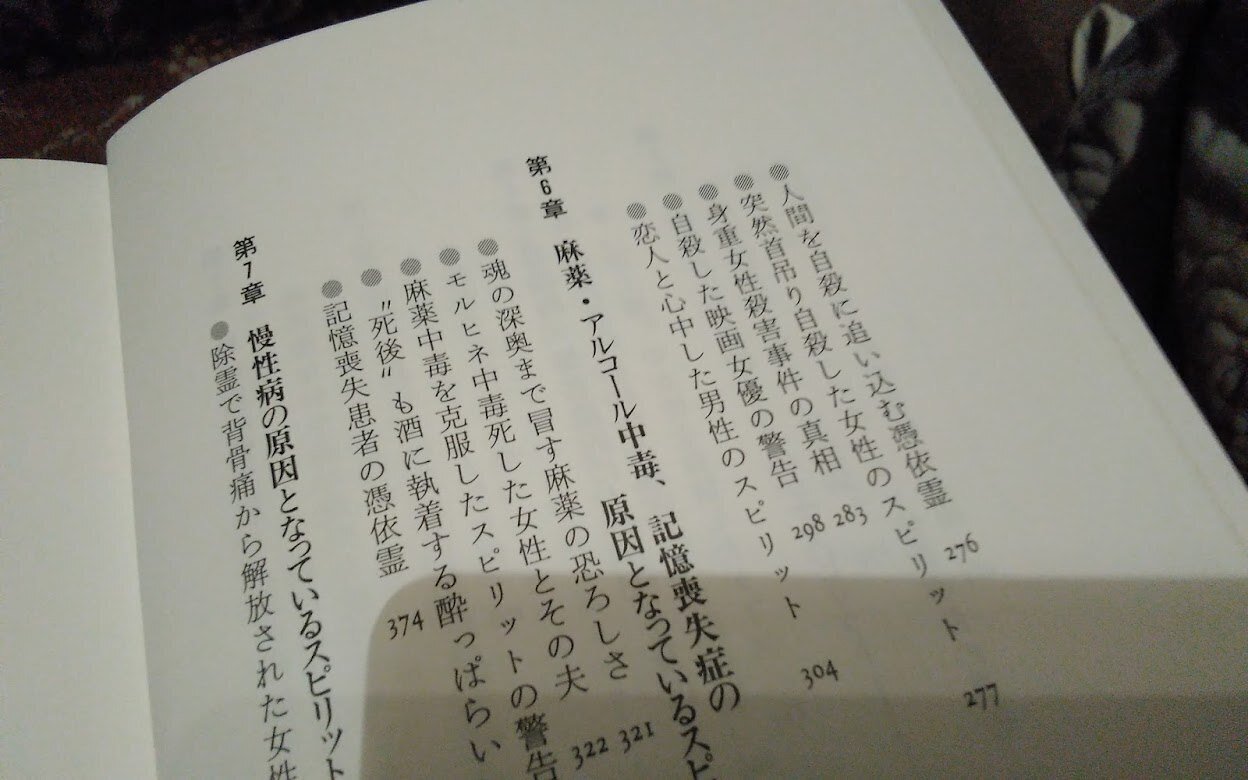 ●人間を自殺に追い込む憑依霊 276
●突然首吊り自殺した女性のスピリット 277
●身重女性殺害事件の真相 283
●自殺した映画女優の警告 298
●恋人と心中した男性のスピリット 304
第6章 麻薬・アルコール中毒、記憶喪失症の
原因となっているスピ
●魂の深奥まで冒す麻薬の恐ろしさ 321
●モルヒネ中毒死した女性とその夫 322
●麻薬中毒を克服したスピリットの警告
●〝死後〟も酒に執着する酔っぱらい
●記憶喪失患者の憑依霊 374
第7章 慢性病の原因となっているスピリット
●除霊で背骨痛から解放された女性